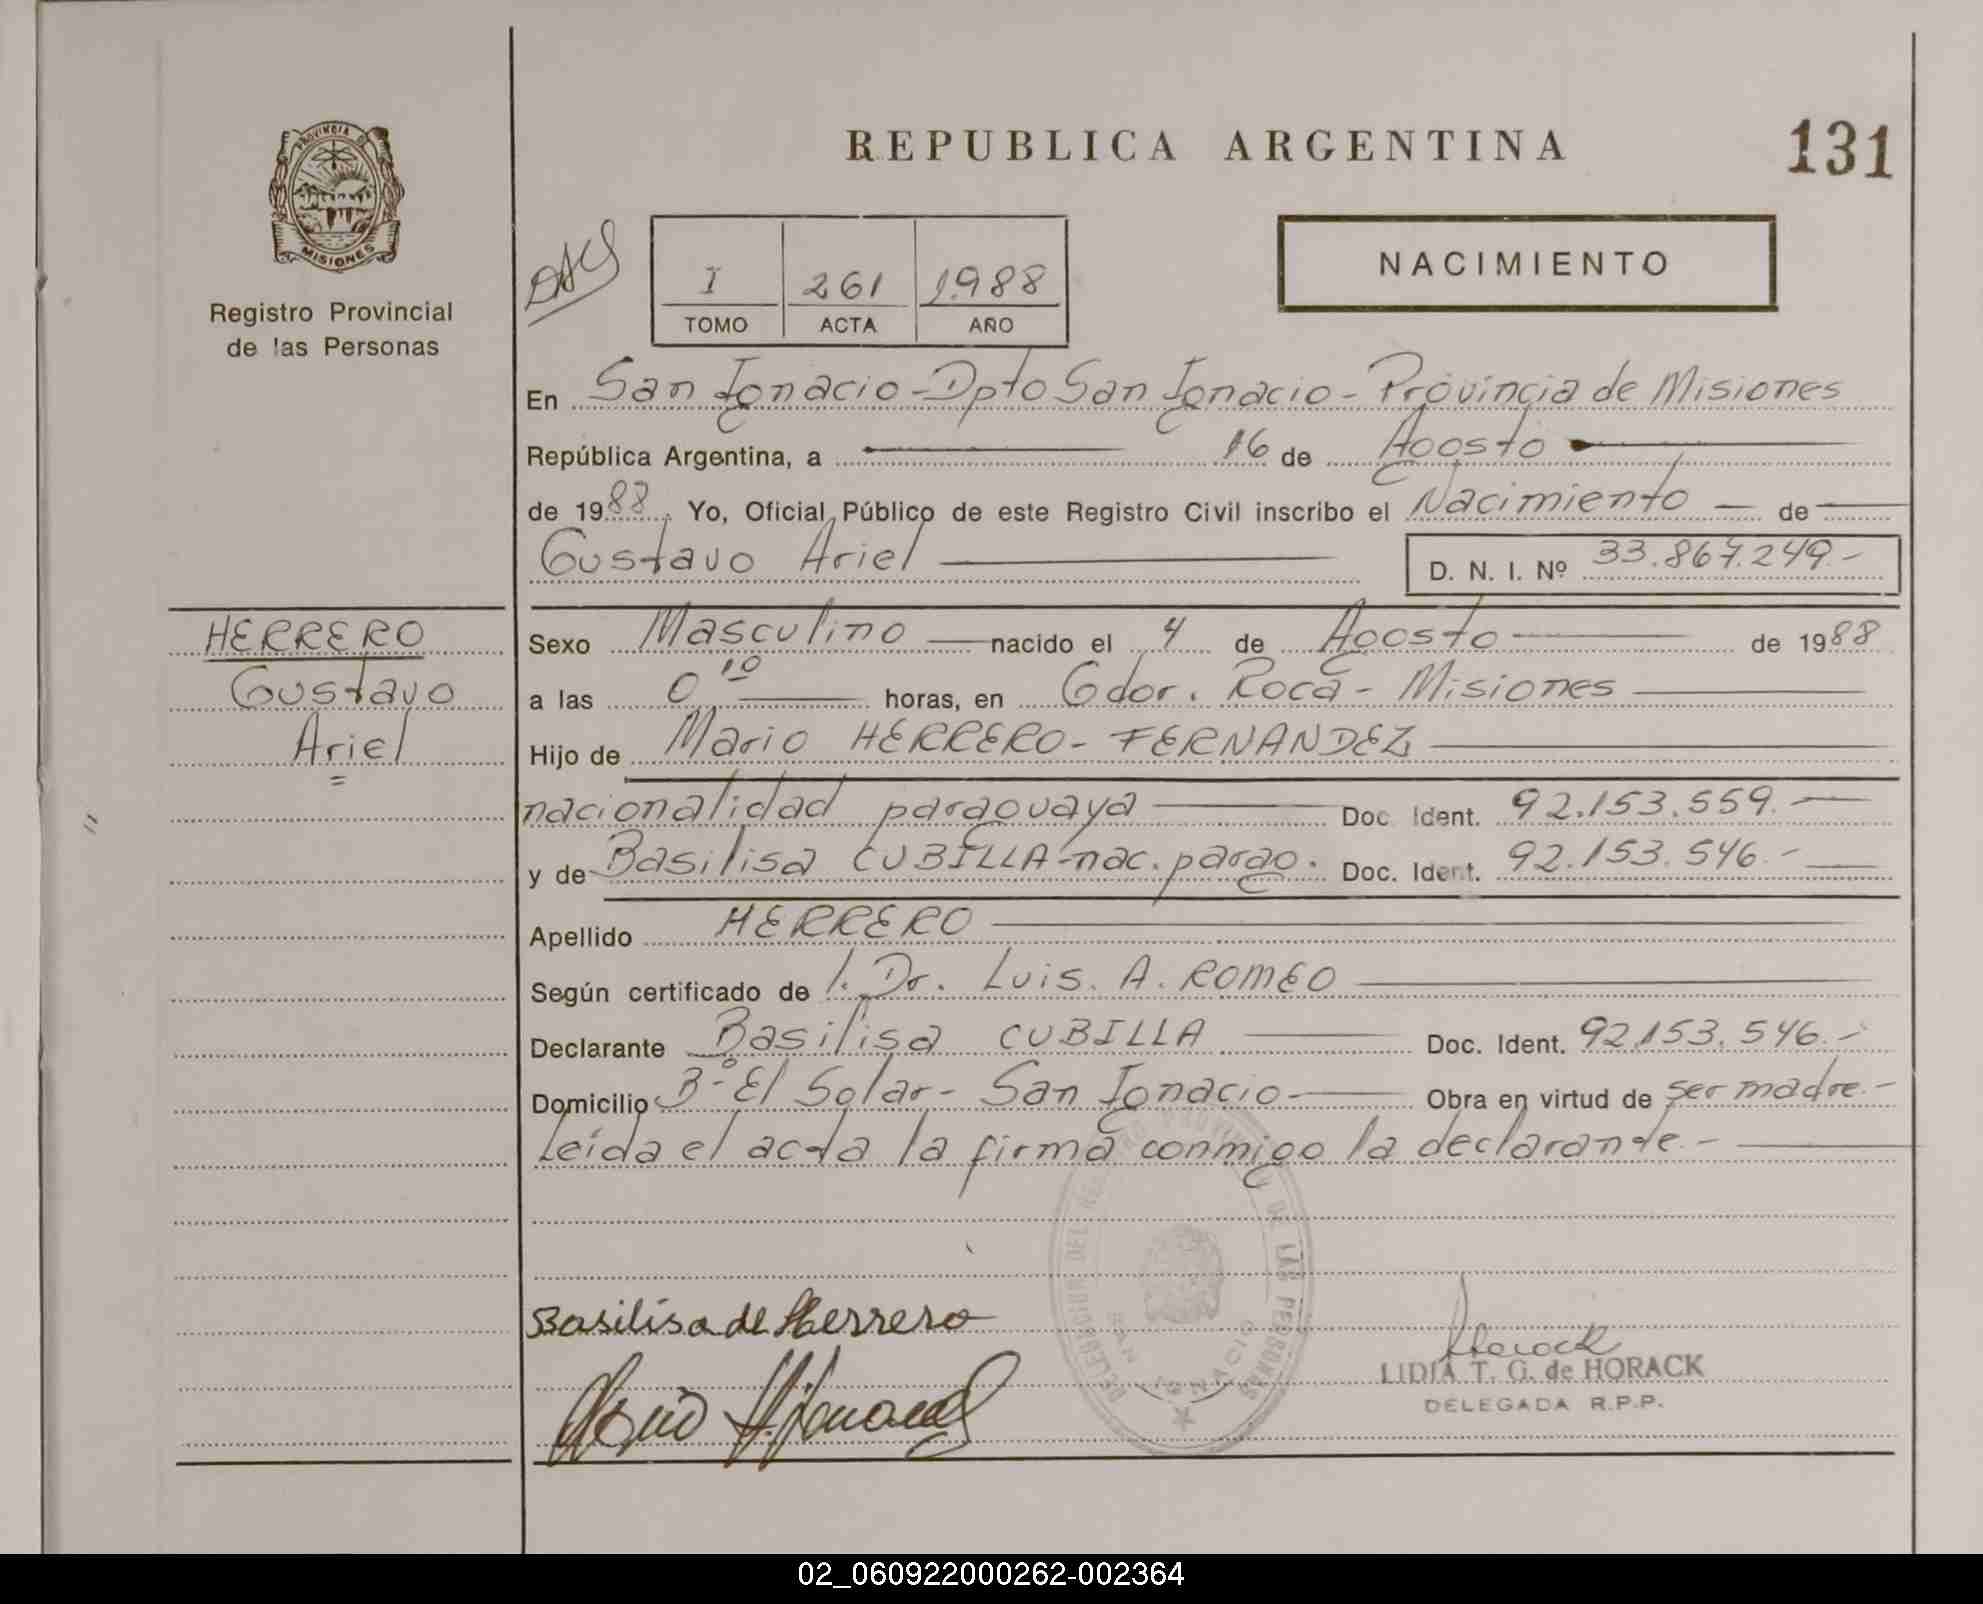 PROVINCIA DE
MISIONES
Registro Provincial
de las Personas
REPUBLICA ARGENTINA
131
NACIMIENTO
I 261 1.988
TOMO ACTA AÑO
En San Ignacio - Dpto San Ignacio - Provincia de Misiones
República Argentina, a 16 de Agosto
de 1988. Yo, Oficial Público de este Registro Civil inscribo el Nacimiento — de
Gustavo Ariel
D. N. I. Nº 33.867.249.-
HERRERO
Gustavo
Ariel
Sexo Masculino — nacido el 4 de Agosto de 1988
a las 0 10 horas, en Gdor. Roca - Misiones
Hijo de Mario HERRERO - FERNANDEZ
nacionalidad paraguaya Doc. Ident. 92.153.559.-
y de Basilisa CUBILLA - nac. parag. Doc. Ident. 92.153.546.-
Apellido HERRERO
Según certificado de l. Dr. Luis. A. ROMEO
Declarante Basilisa CUBILLA Doc. Ident. 92.153.546.-
Domicilio Bº El Solar - San Ignacio - Obra en virtud de ser madre.-
Leída el acta la firma conmigo la declarante.-
DELEGACION DEL REGISTRO PROVINCIAL DE LAS PERSONAS
SAN IGNACIO
Basilisa de Herrero
Horack
LIDIA T. G. de HORACK
DELEGADA R.P.P.
02_060922000262-002364